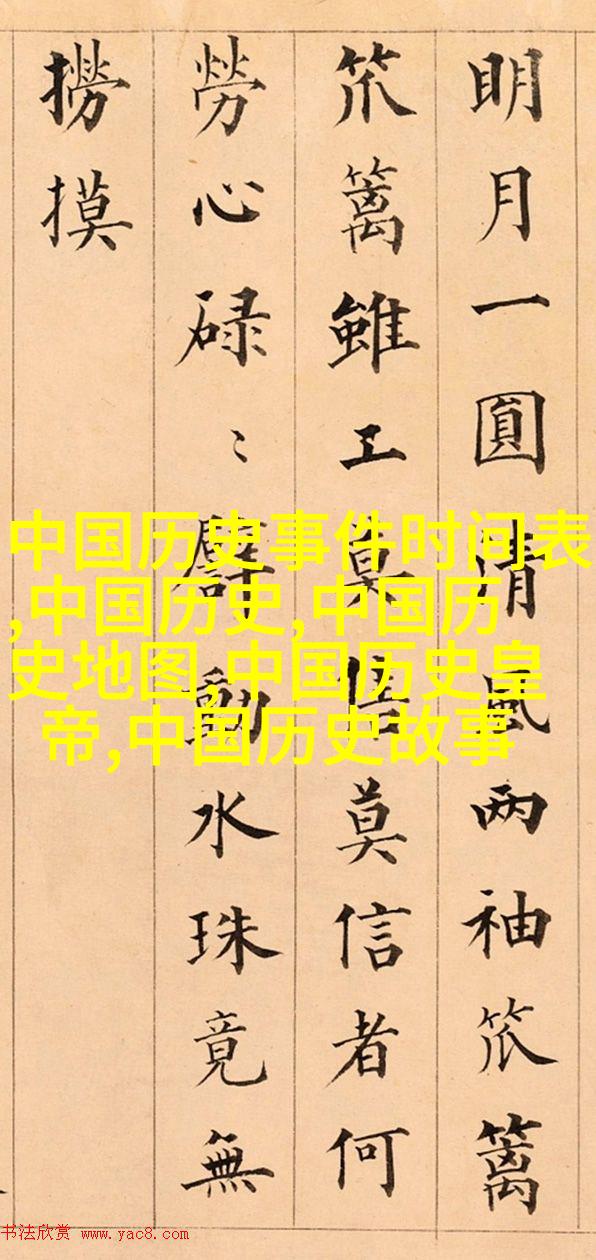 明月一圓清風两袖笊篱
笊篱雖工莫莫信者何
勞心碌〻動水珠竟無
撈摸
中国历史事件时间表
,中国历史,中国历
史地图,中国历史皇
帝,中国历史故事
书法欣赏 www.yac8.com